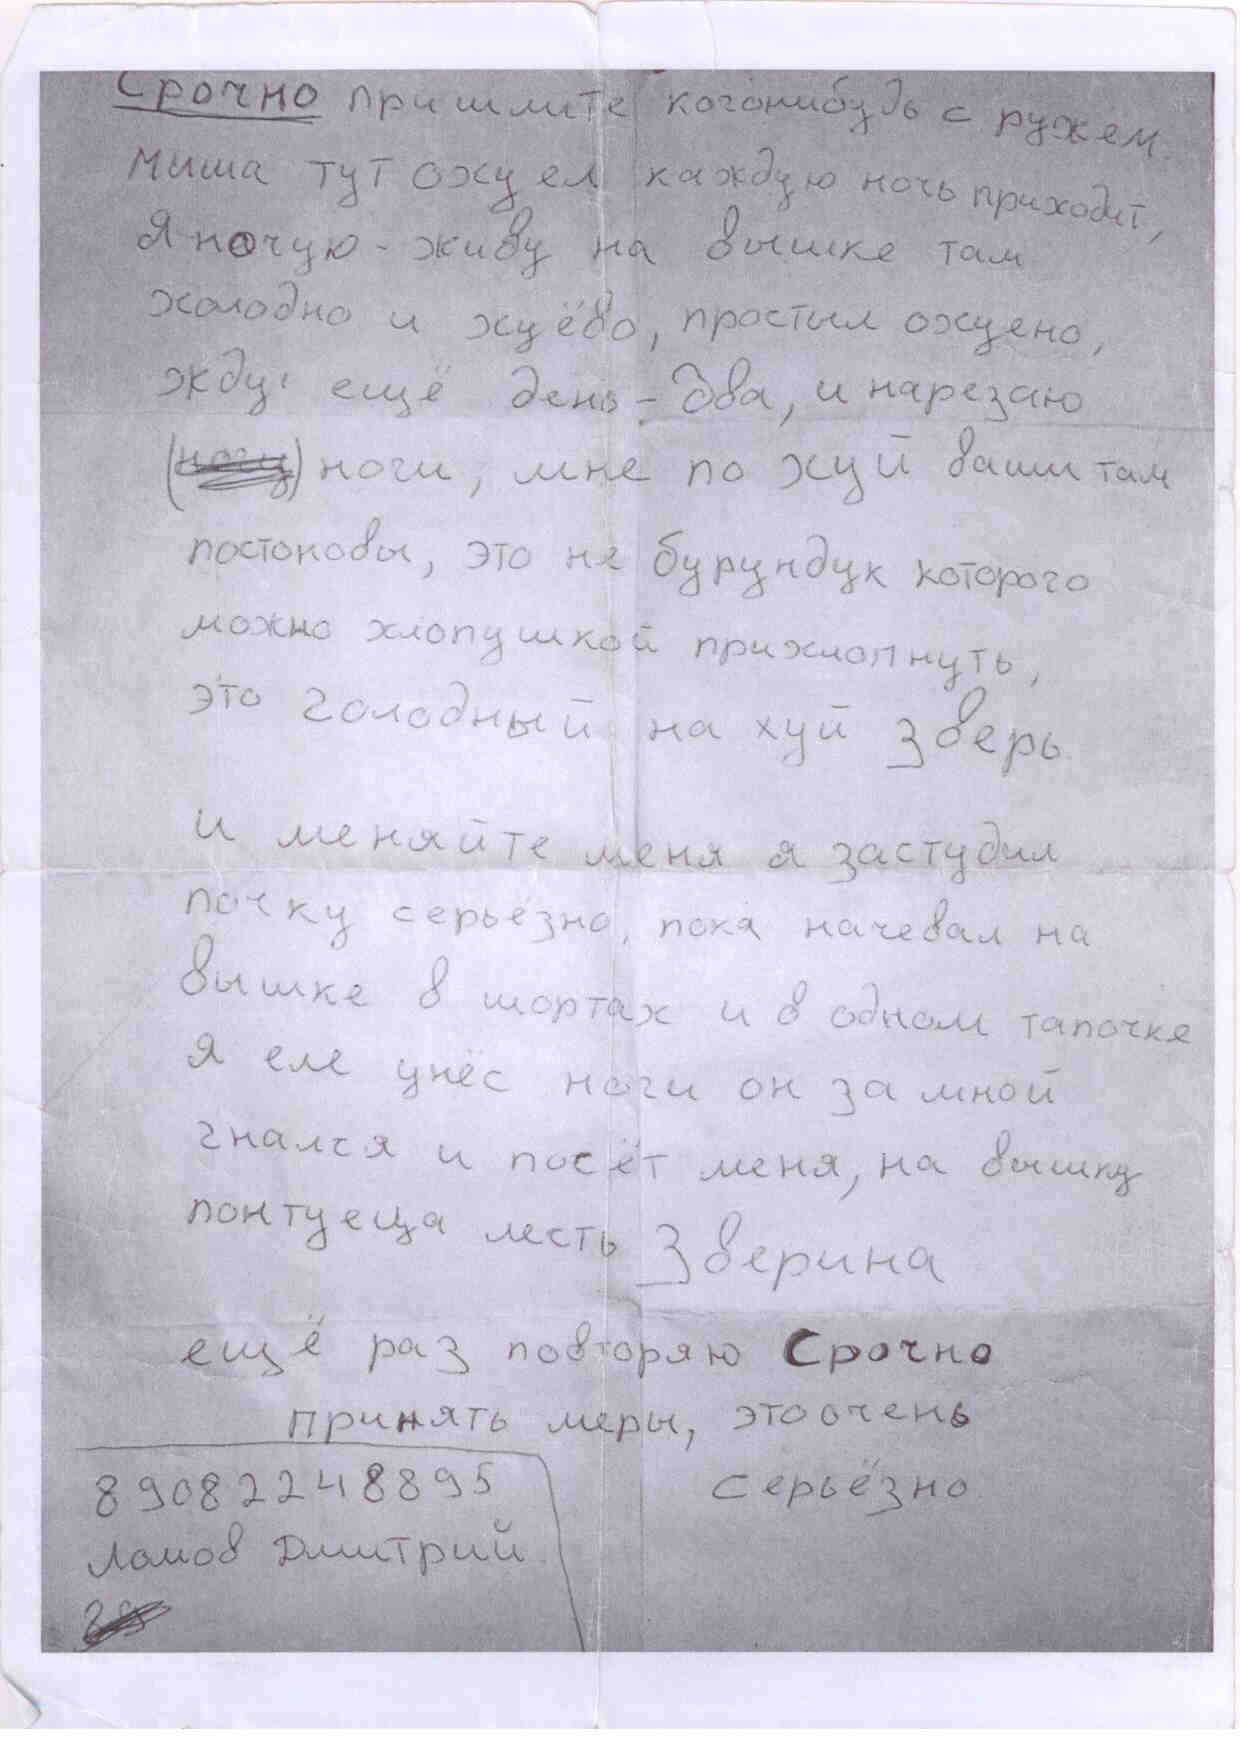 Срочно пришлите когонибудь с ружем.
Миша тут охуел каждую ночь приходит,
Я ночую - живу на вышке там
холодно и хуёво, простыл охуено,
жду ещё день - два, и нарезаю
ноги, мне по хуй ваши там
постоновы, это не бурундук которого
можно хлопушкой прихлопнуть,
это голодный на хуй зверь.
и меняйте меня я застудил
почку серьёзно, пока начевал на
вышке в шортах и в одном тапочке
я еле унёс ноги он за мной
гнался и посёт меня, на вышку
понтуеца лесть зверина
ещё раз повторяю Срочно
принять меры, это очень
серьёзно.
89082248895
Ломов Дмитрий.